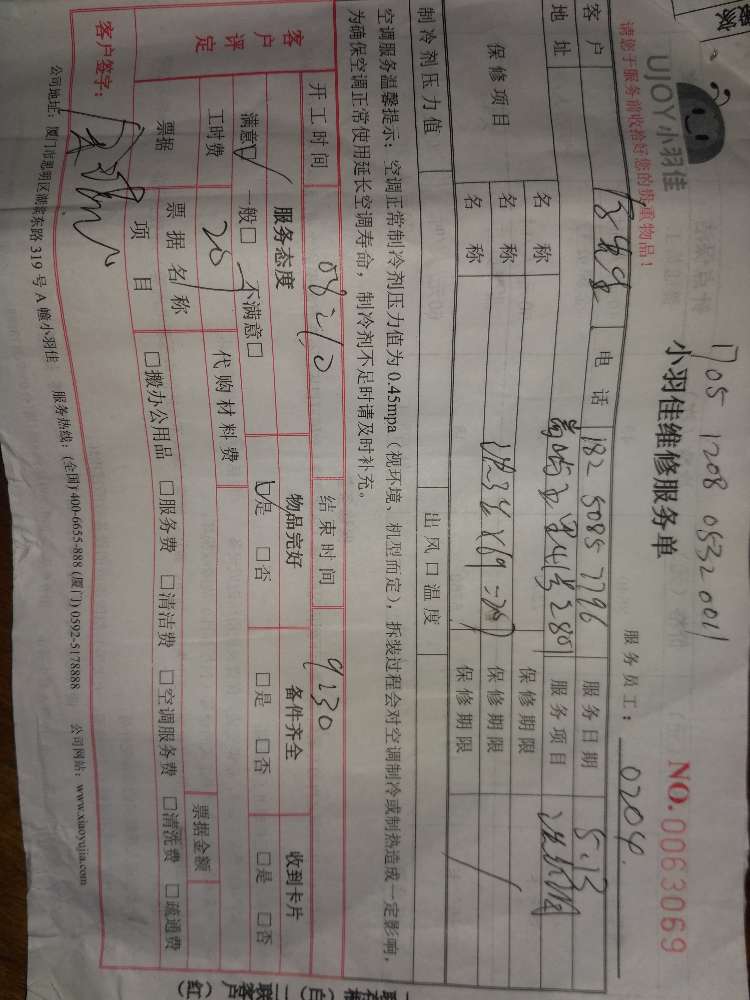 UJOY小羽佳
请您于服务前收拾好您的贵重物品！
1705 1208 0532 0011
小羽佳维修服务单
NO.0063069
服务员工：0204
客户 电话 182 5085 7796 服务日期 5.13
地址 服务项目
保修项目 名称 保修期限
名称 保修期限
名称 保修期限
制冷剂压力值 出风口温度
空调服务温馨提示：空调正常制冷剂压力值为0.45mpa（视环境、机型而定），拆装过程会对空调制冷或制热造成一定影响，
为确保空调正常使用延长空调寿命，制冷剂不足时请及时补充。
开工时间 结束时间 9:30
客户评定 服务态度 物品完好 备件齐全 收到卡片
满意□ 一般□ 不满意□ □是 □否 □是 □否 □是 □否
工时费 207 代购材料费 票据金额
票据 票据名称 □搬办公用品 □服务费 □清洁费 □空调服务费 □清洗费 □疏通费
项目
客户签字：
公司地址：厦门市思明区湖滨东路319号A幢小羽佳 服务热线：(全国)400-6655-888 (厦门)0592-5178888 公司网站：www.xiaoyujia.com